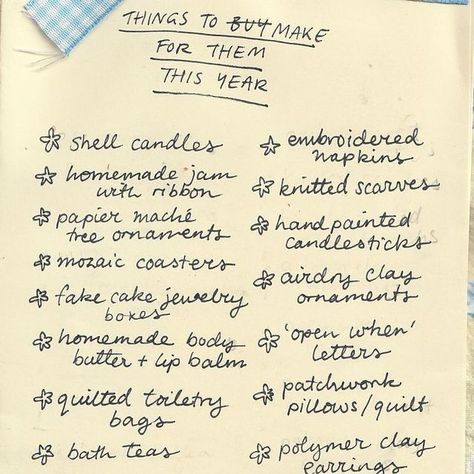 THINGS TO BUY MAKE
FOR THEM
THIS YEAR
shell candles
homemade jam
with ribbon
papier maché
tree ornaments
mozaic coasters
fake cake jewelry
boxes
homemade body
butter + lip balm
quilted toiletry
bags
bath teas
embroidered
napkins
knitted scarves
handpainted
candlesticks
airdry clay
ornaments
'open when'
letters
patchwork
pillows/quilt
polymer clay
earrings